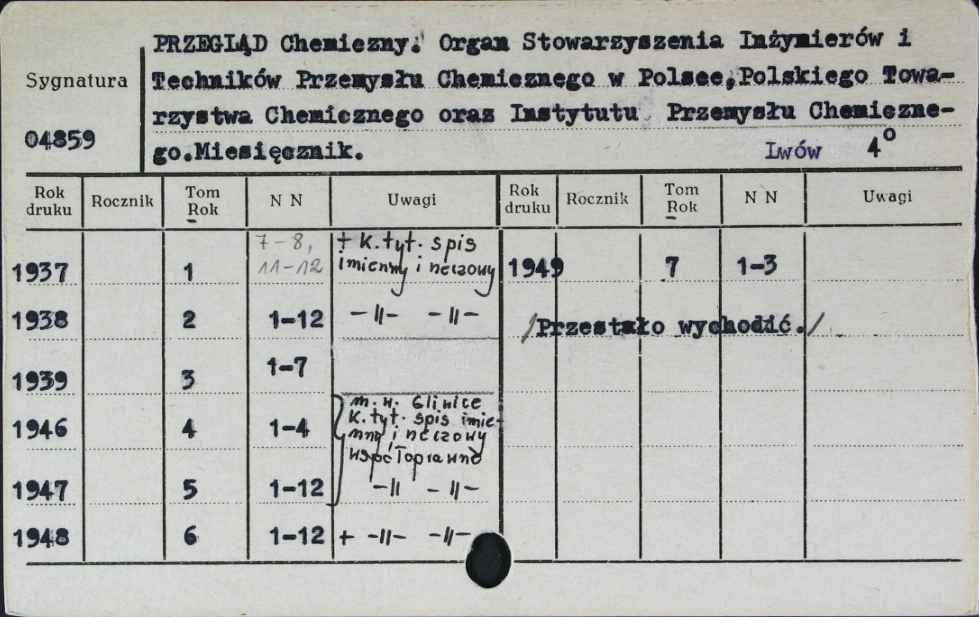 PRZEGLĄD Chemiczny. Organ Stowarzyszenia Inżynierów i
Sygnatura
Techników Przemysłu Chemicznego w Polsce, Polskiego Towa-
rzystwa Chemicznego oraz Instytutu Przemysłu Chemiczne-
04859
go. Miesięcznik. Lwów 4°
Rok druku Rocznik Tom Rok N N Uwagi Rok druku Rocznik Tom Rok N N Uwagi
7-8, + K. tyt. spis
1937 1 11-12 imienny i rzeczowy 1949 7 1-3
1938 2 1-12 -||- -||- /Przestało wychodzić./
1939 3 1-7
m. w. Gliwice
K. tyt. spis imie-
1946 4 1-4 nny i rzeczowy
współoprawne
1947 5 1-12 -|| -||-
1948 6 1-12 + -||- -||-